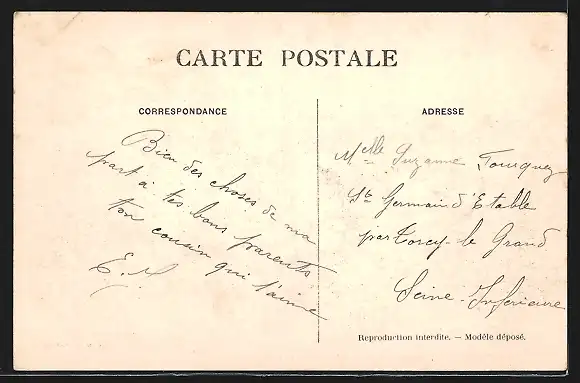 CARTE POSTALE
CORRESPONDANCE
Bien des choses de ma
part à tes bons parents
ton cousin qui t'aime
E. M
ADRESSE
Melle Suzanne
St Germain d'Etable
par Torcy-le Grand
Seine-Inferieure
Reproduction interdite. — Modèle déposé.